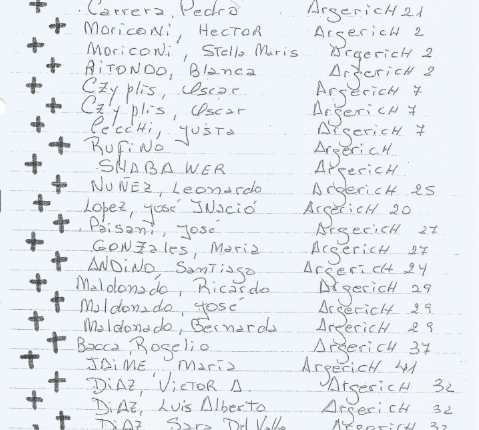 Carrera, Pedro Argerich 21
MORICONI, HECTOR Argerich 2
MORICONI, Stella Maris Argerich 2
AITONDO, Blanca Argerich 2
CZyplis, Oscar Argerich 7
CZyplis, Oscar Argerich 7
CeccHi, JUSTA Argerich 7
RUFINO Argerich
SNABA WER Argerich
NUÑEZ, Leonardo Argerich 25
Lopez, José INació Argerich 20
Paisani, Jose Argerich 27
GONZales, Maria Argerich 27
ANDINO, Santiago Argerich 24
Maldonado, Ricardo Argerich 29
Maldonado, José Argerich 29
Maldonado, Bernardo Argerich 29
Bacca, Rogelio Argerich 37
JAIME, Maria Argerich 41
DiAZ, VicToR A Argerich 32
DiAZ, Luis Alberto Argerich 32
DIAZ Sara Del Valle Argerich 32